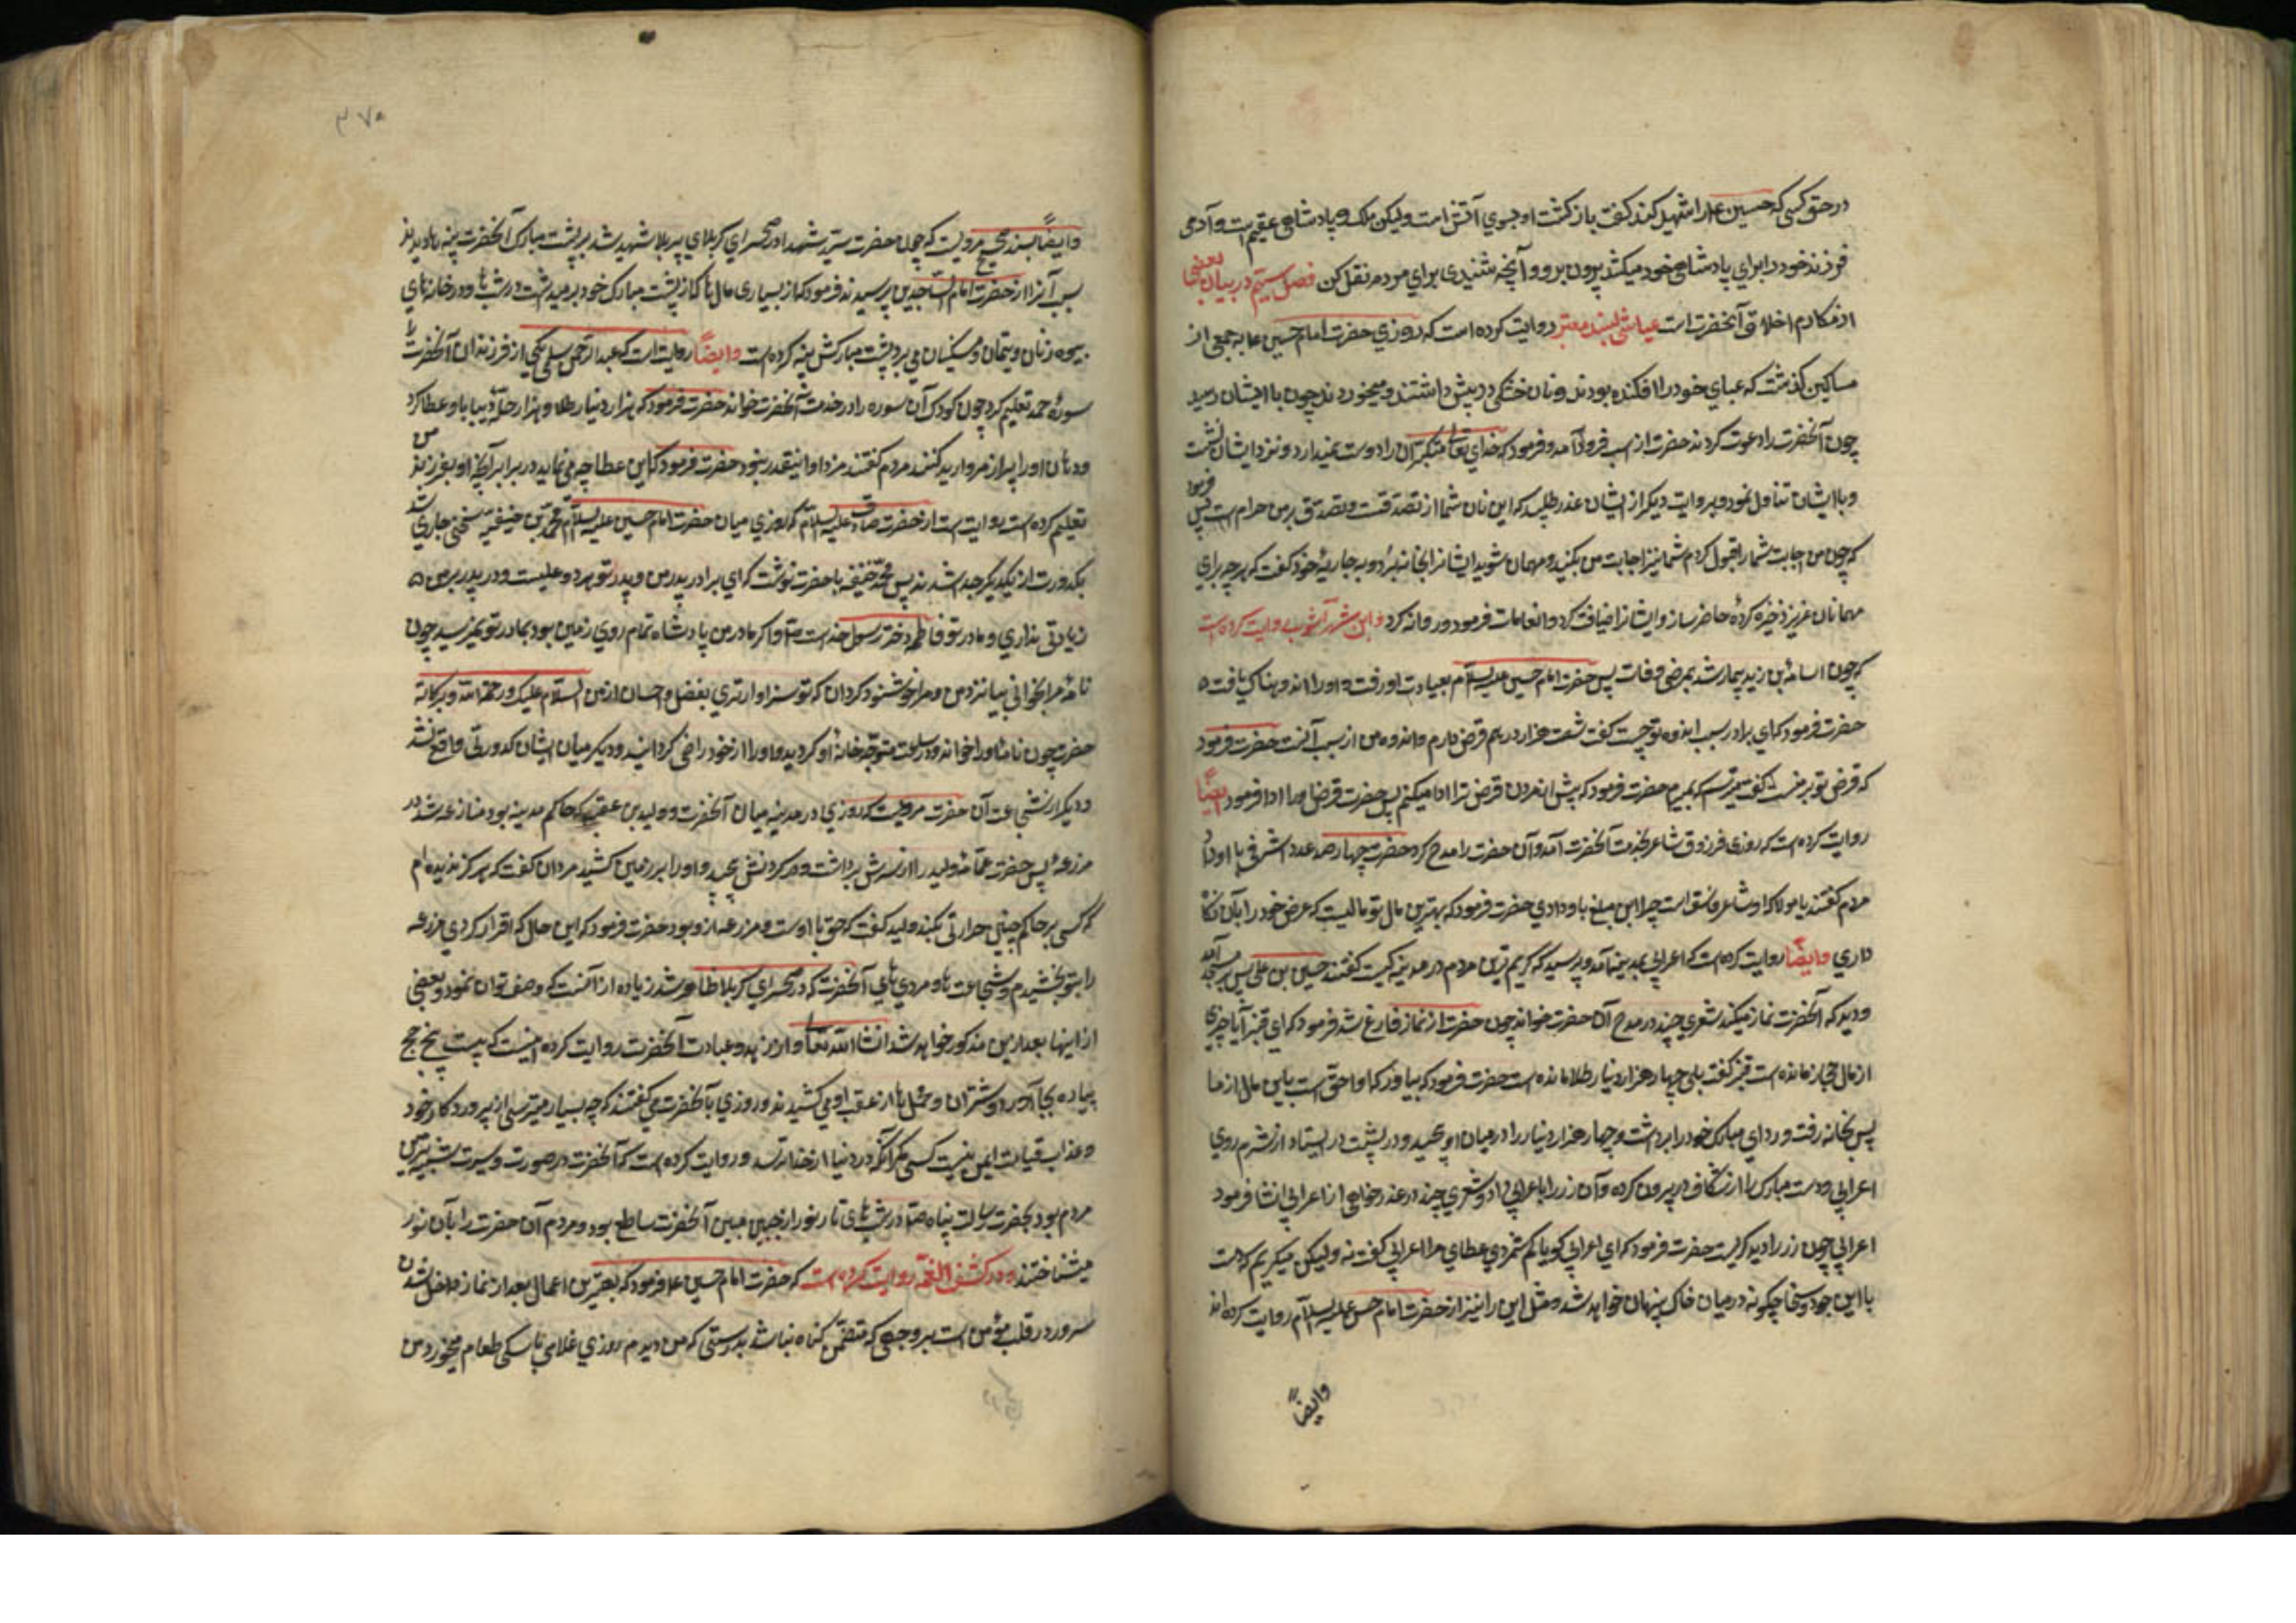 در حق کسی که حسین ع را شهید کند گفت بازگشت او بسوی آتش است ولیکن ملک و پادشاهی عقیم است و آدمی
فرزند خود را برای پادشاهی خود میکشد بیرون برو و آنچه شنیدی برای مردم نقل کن فصل سیم در بیان بعضی
از مکارم اخلاق آنحضرت است عیاشی بسند معتبر روایت کرده است که روزی حضرت امام حسین ع به جمعی از
مساکین گذشت که عبای خود را افکنده بودند و نان خشکی در پیش داشتند و میخوردند چون با ایشان رسید
چون آنحضرت را دعوت کردند حضرت از اسب فرود آمد و فرمود که خدای تعالی متکبران را دوست نمیدارد و نزد ایشان نشست
و با ایشان تناول نمود و بروایت دیگر از ایشان عذر طلبید که این نان شما از تصدقست و تصدق بر من حرام است پس فرمود
که چون من اجابت شما را قبول کردم شما نیز اجابت من بکنید و مهمان شوید ایشانرا بخانه برد و به جاریه خود گفت که هر چه برای
مهمانان عزیز ذخیره کرده حاضر ساز و ایشانرا ضیافت کرد و انعامات فرمود و روانه کرد و ابن شهر آشوب روایت کرده است
که چون اسامه بن زید بیمار شد بمرض وفات پس حضرت امام حسین علیه السلام بعیادت او رفت و او را اندوهناک یافت
حضرت فرمود که ای برادر سبب اندوه تو چیست گفت شصت هزار درهم قرض دارم و اندوه من از سبب آنست حضرت فرمود
که قرض تو بر منست گفت میترسم که بمیرم حضرت فرمود که پیش از مردن قرض ترا ادا میکنم پس حضرت قرض او را ادا فرمود ایضاً
روایت کرده است که روزی فرزوق شاعر بخدمت آنحضرت آمد و آن حضرت را مدح کرد حضرت چهار صد عدد اشرفی با او داد
مردم گفتند یا مولا که او شاعر فاسق است چرا این مبلغ باو دادی حضرت فرمود که بهترین مال تو مالیست که عرض خود را بآن نگاه
داری و ایضاً روایت کرده است که اعرابی بمدینه آمد و پرسید که کریم ترین مردم در مدینه کیست گفتند حسین بن علی پس بمسجد آمد
و دید که آنحضرت نماز میکند شعری چند در مدح آن حضرت خواند چون حضرت از نماز فارغ شد فرمود که ای قنبر آیا چیزی
از مال حجاز مانده است قنبر گفت بلی چهار هزار دینار طلا مانده است حضرت فرمود که بیاور که او احق است باین مال از ما
پس بخانه رفت و ردای مبارک خود را برداشت و چهار هزار دینار را در میان او پیچید و در پشت در ایستاد از شرم روی
اعرابی و دست مبارک را از شکاف در بیرون کرده و آن زر را باعرابی داد و شعری چند در عذر خواهی از اعرابی انشا فرمود
اعرابی چون زر را دید گریست حضرت فرمود که ای اعرابی گویا کم شمردی عطای مرا اعرابی گفت نه ولیکن میگریم که دست
با این جود و سخا چگونه در میان خاک پنهان خواهد شد و مثل این را نیز از حضرت امام حسن علیه السلام روایت کرده اند
وایضاً
۳۷۵
وایضاً بسند صحیح مرویست که چون حضرت سید شهدا در صحرای کربلای پر بلا شهید شد بر پشت مبارک آنحضرت پینه ها دیدند
سبب آنرا از حضرت امام الساجدین پرسیدند فرمود که از بسیاری مال ها که از پشت مبارک خود بر میداشت در شب ها و در خانه های
بیوه زنان و یتیمان و مسکینان می برد پشت مبارکش پینه کرده است وایضاً روایت است که عبد الرحمن سلمی یکی از فرزندان آنحضرت را
سوره حمد تعلیم کرد چون کودک آن سوره را در خدمت آنحضرت خواند حضرت فرمود که هزار دینار طلا و هزار حله دیبا باو عطا کرد
و دهان او را پر از مروارید کنند مردم گفتند مزد او اینقدر نبود حضرت فرمود که این عطا چه می نماید در برابر آنچه او بفرزند من
تعلیم کرده است روایت است از حضرت صادق علیه السلام که روزی میان حضرت امام حسین علیه السلام و محمد بن حنفیه سخنی جاری شد
بکدورت از یکدیگر جدا شدند پس محمد حنفیه با حضرت نوشت که ای برادر پدر من و پدر تو هر دو علیست و در پدر بر من
زیادتی نداری و مادر تو فاطمه دختر رسول خداست ص و اگر مادر من پادشاه تمام روی زمین بود بمادر تو نمیرسید چون
نامه مرا بخوانی بیا نزد من و مرا خوشنود گردان که تو سزاوارتری بفضل و احسان از من السلام علیک و رحمة الله و برکاته
حضرت چون نامه او را خواند در ساعت متوجه خانه او گردید و او را از خود راضی گردانید و دیگر میان ایشان کدورتی واقع نشد
و دیگر از شجاعت آن حضرت مرویست که روزی در مدینه میان آنحضرت و ولید بن عقبه که حاکم مدینه بود منازعه شد در
مزرعه پس حضرت عمامه ولید را از سرش برداشت و در گردنش پیچید و او را بر زمین کشید مردان گفت که هرگز ندیده ام
که کسی بر حاکم چنین جرأتی بکند ولید گفت که حق با اوست و مزرعه از و بود حضرت فرمود که این حال که اقرار کردی مزرعه
را بتو بخشیدم و شجاعت ها و مردی های آنحضرت که در صحرای کربلا ظاهر شد زیاده از آنست که وصف توان نمود و بعضی
از اینها بعد ازین مذکور خواهد شد انشا الله تعالی و از زهد و عبادت آنحضرت روایت کرده اینست که بیست پنج حج
پیاده بجا آورد و شتران و محمل ها از عقب او می کشیدند و روزی بآنحضرت می گفتند که چه بسیار میترسی از پروردگار خود
و عذاب قیامت ایمن نیست کسی مگر آنکه در دنیا از خدا بترسد و روایت کرده است که آنحضرت در صورت و سیرت شبیه ترین
مردم بود بحضرت رسالت پناه ص در شب های تار نور از جبین مبین آنحضرت ساطع بود و مردم آن حضرت را بآن نور
میشناختند و در کشف الغمه روایت کرده است که حضرت امام حسین ع فرمود که بهترین اعمال بعد از نماز داخل شدن
سرور در قلب مؤمن است بر وجهی که متضمن گناه نباشد بدرستی که من دیدم روزی غلامی با سگی طعام میخورد من